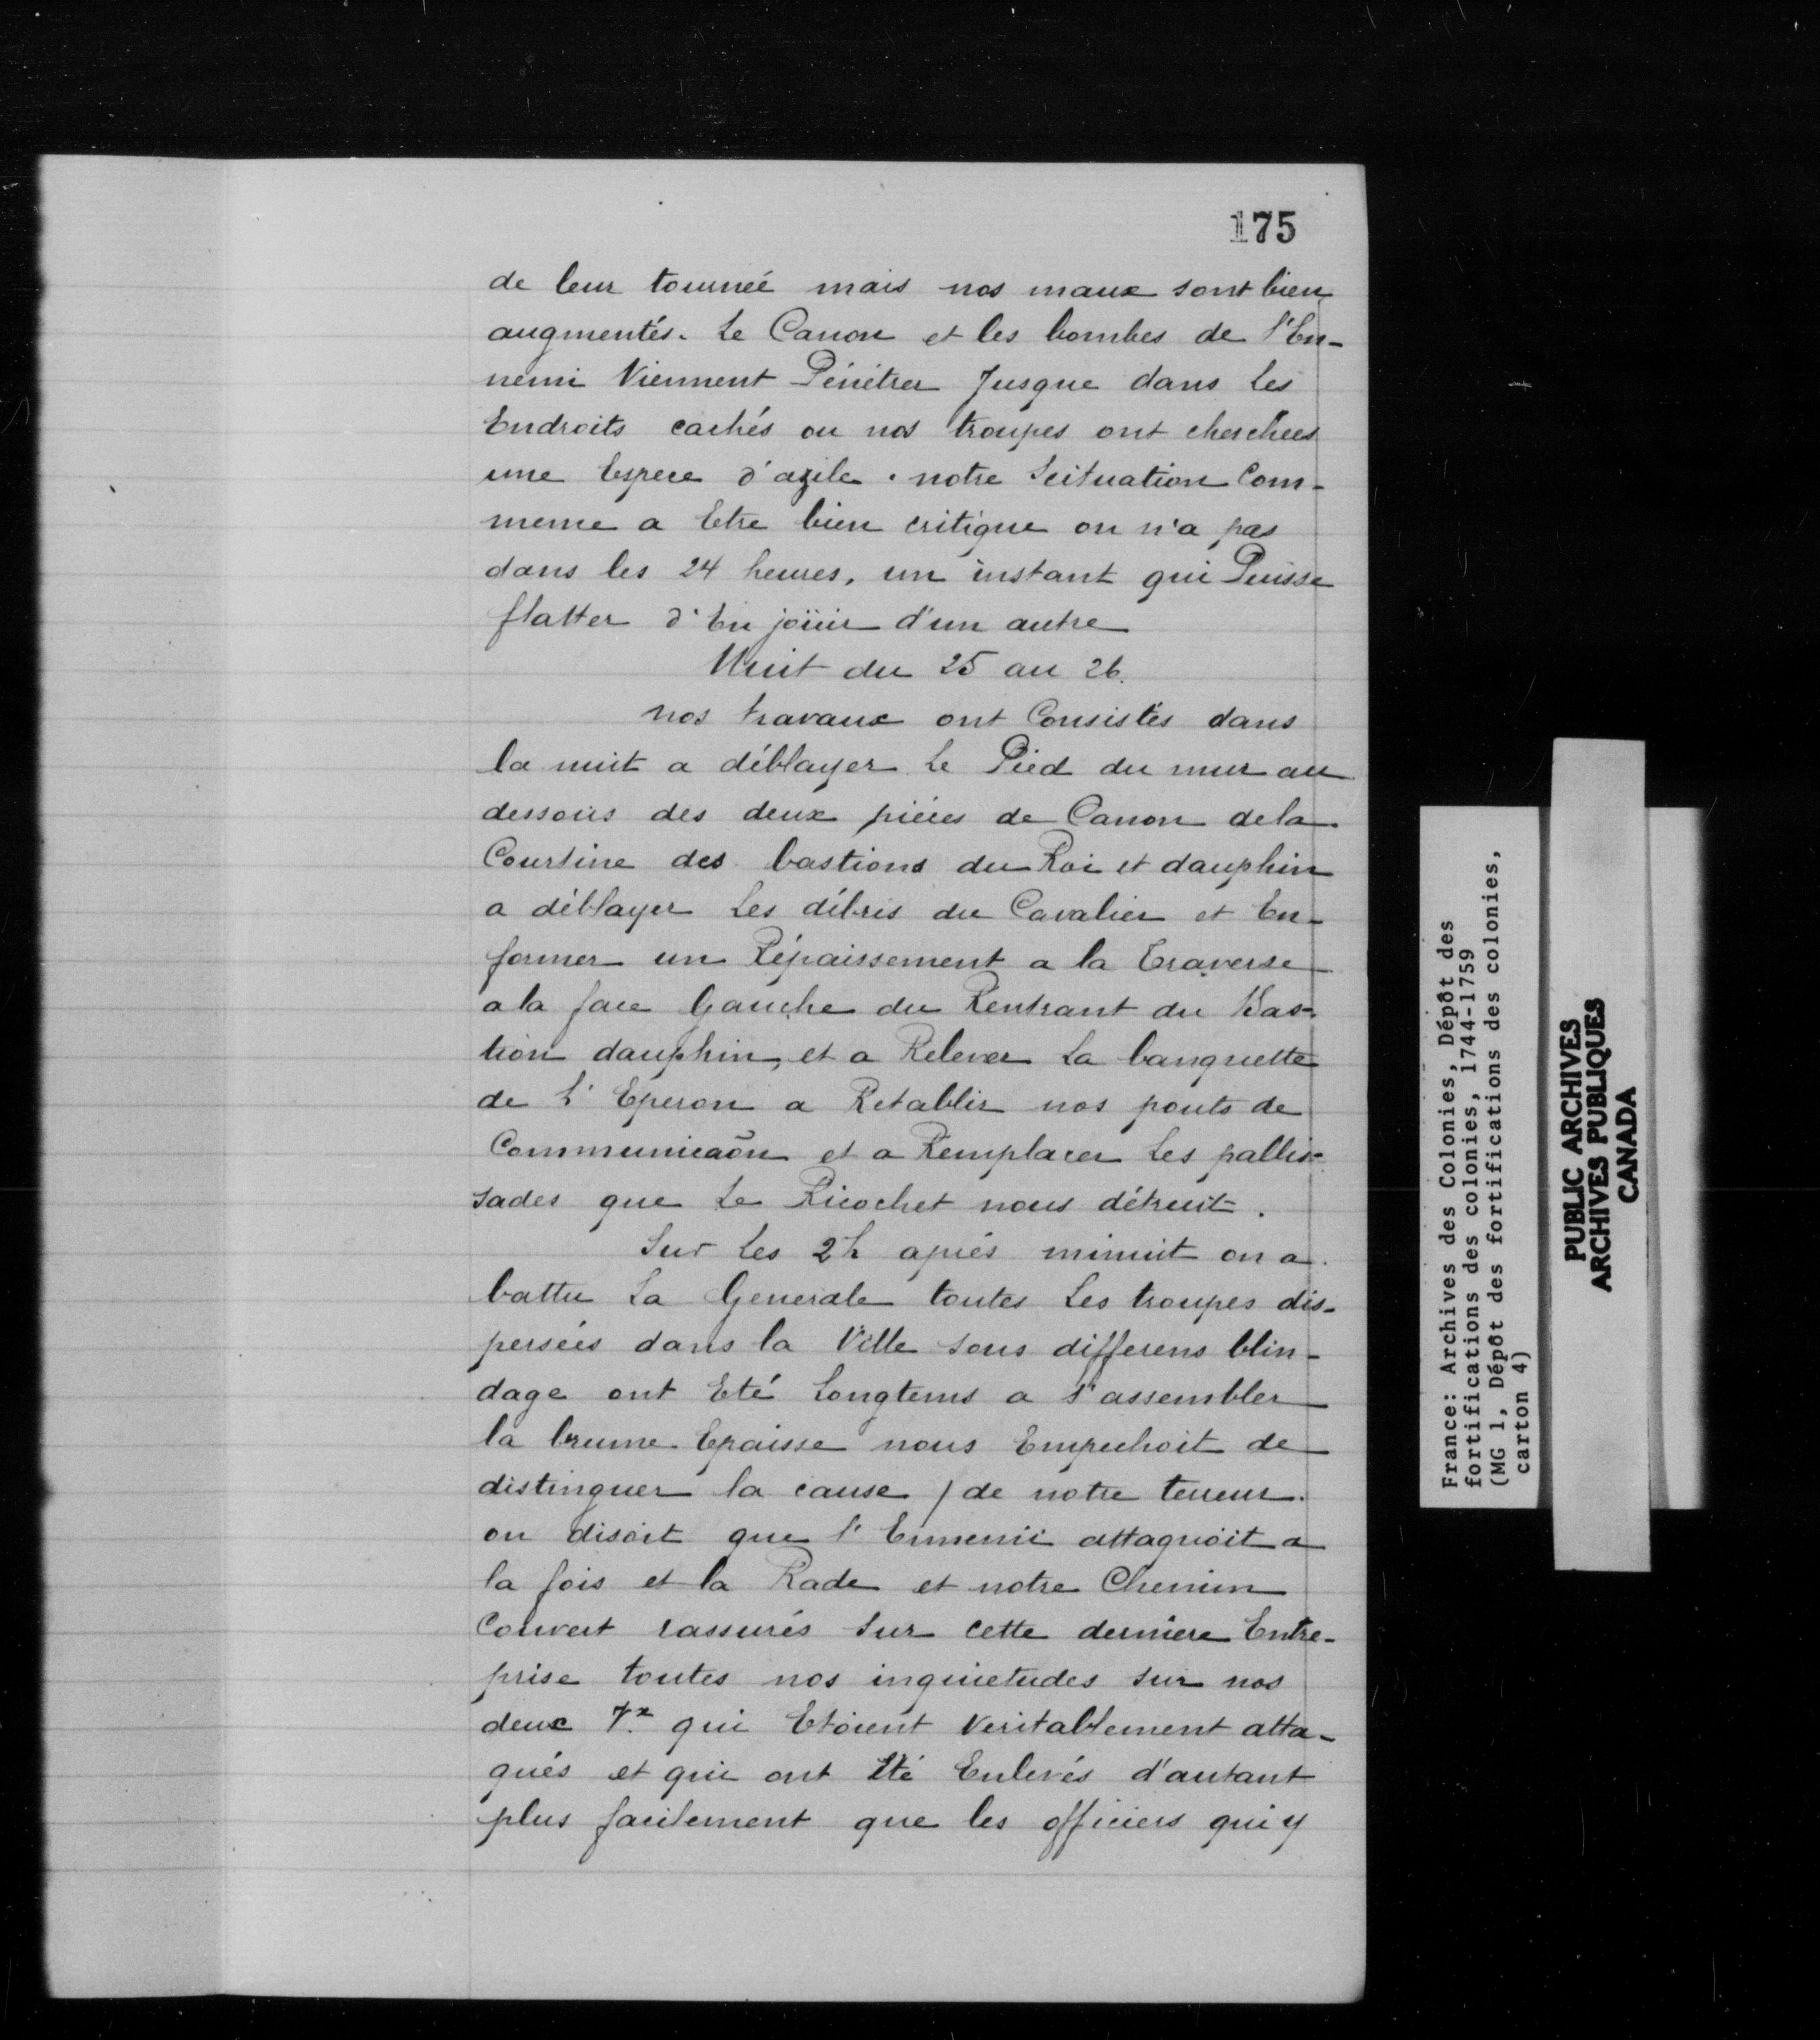 175
de leur tournée mais nos maux sont bien
augmentés. Le Canon et les bombes de l'En-
nemi Viennent Pénétrer Jusque dans Les
Endroits cachés ou nos troupes ont cherchées
une Espece d'azile. notre Scituation Com-
mence a Etre bien critique on n'a pas
dans les 24 heures, un instant qui Puisse
flatter d'En joüir d'un autre
Nuit du 25 au 26.
nos travaux ont Consistés dans
la nuit a déblayer Le Pied du mur au
dessous des deux piéces de Canon dela
Courtine des bastions du Roi et dauphin
a déblayer Les débris du Cavalier et En-
former un Répaissement a la Traverse
a la face Gauche du Rentrant du Bas-
tion dauphin, et a Relever La banquette
de L'Eperon a Retablir nos ponts de
Communicaõn et a Remplacer Les pallis-
sades que Le Ricochet nous détruit.
Sur Les 2h aprés minuit on a
battu La Generale toutes Les troupes dis-
persées dans la Ville sous differens blin-
dage ont Eté Longtems a s'assembler
la brume Epaisse nous Empechoit de
distinguer la cause / de notre terreur.
on disoit que l'Ennemi attaquoit a
la fois et la Rade et notre Chemin
Couvert rassurés sur cette derniere Entre-
prise toutes nos inquietudes sur nos
deux Vx. qui Etoient Veritablement atta-
qués et qui ont Eté Enlevés d'autant
plus facilement que les officiers qui y
France: Archives des Colonies, Dépôt des
fortifications des colonies, 1744-1759
(MG 1, Dépôt des fortifications des colonies,
carton 4)
PUBLIC ARCHIVES
ARCHIVES PUBLIQUES
CANADA